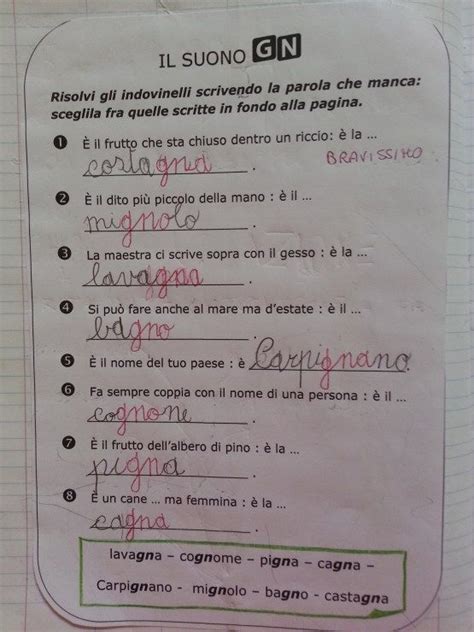 IL SUONO GN
Risolvi gli indovinelli scrivendo la parola che manca:
sceglila fra quelle scritte in fondo alla pagina.
1 È il frutto che sta chiuso dentro un riccio: è la ...
castagna .
BRAVISSIMO
2 È il dito più piccolo della mano : è il ...
mignolo .
3 La maestra ci scrive sopra con il gesso : è la ...
lavagna .
4 Si può fare anche al mare ma d'estate : è il ...
bagno .
5 È il nome del tuo paese : è Carpignano.
6 Fa sempre coppia con il nome di una persona : è il ...
cognome .
7 È il frutto dell'albero di pino : è la ...
pigna .
8 È un cane ... ma femmina : è la ...
cagna .
lavagna – cognome – pigna – cagna –
Carpignano - mignolo – bagno - castagna